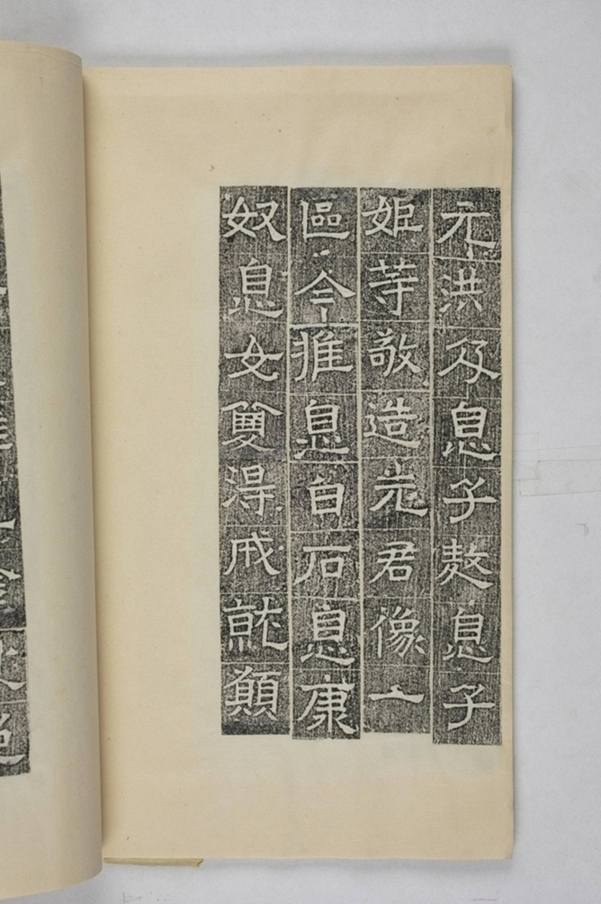 元洪及息子敖息子
姬等敬造老君像一
區今推息白石息康
奴息女雙得成就願